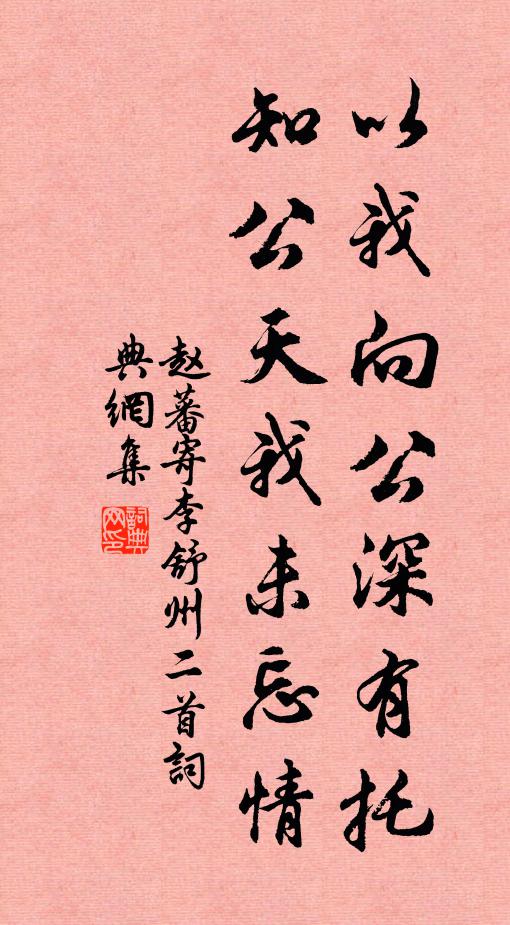 以我向公深有托
知公天我未忘情
赵蕃寄李舒州二首詞
典網集
詞典网印